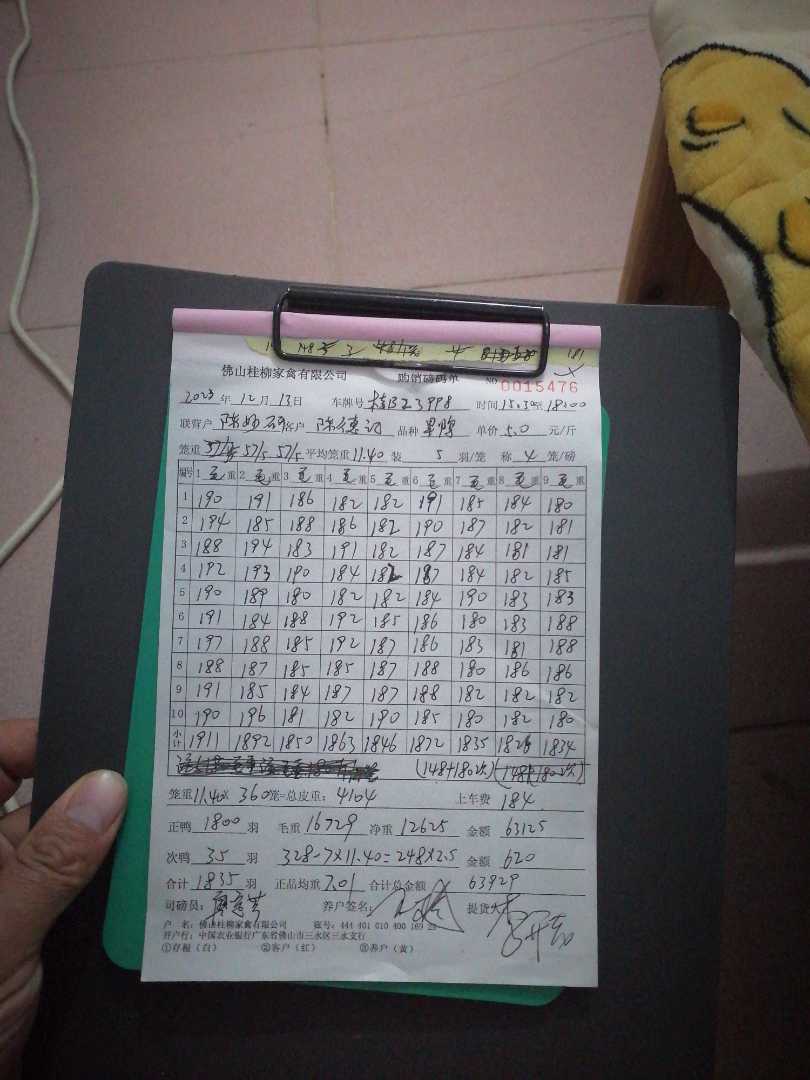 佛山桂柳家禽有限公司 购销磅码单 NO 0015476
2023年12月13日 车牌号 桂BZ3998 时间 15:30至18:00
联营户 客户 陈德 品种 单价 5.0 元/斤
笼重 57/5 57/5 平均笼重 11.40 装 5 羽/笼 称 4 笼/磅
编号 1 毛重 2 毛重 3 毛重 4 毛重 5 毛重 6 毛重 7 毛重 8 毛重 9 毛重
1 190 191 186 182 182 191 185 184 180
2 194 185 188 186 182 190 187 182 181
3 188 194 183 191 182 187 184 181 181
4 192 193 190 184 182 187 184 182 185
5 190 189 180 182 182 184 190 183 183
6 191 184 188 192 185 186 180 183 188
7 197 188 185 192 187 186 183 181 188
8 188 187 185 185 187 188 180 186 186
9 191 185 184 187 187 188 182 182 182
10 190 196 181 182 190 185 180 182 180
小计 1911 1892 1850 1863 1846 1872 1835 1826 1834
(148+180次) (148+180次)
笼重 11.40x 360笼=总皮重: 4104 上车费 184
正鸭 1800 羽 毛重 16729 净重 12625 金额 63125
次鸭 35 羽 328-7x11.40=248x2.5 金额 620
合计 1835 羽 正品均重 7.01 合计总金额 63929
司磅员: 养户签名: 提货人
户 名: 佛山桂柳家禽有限公司 账号: 444 401 010 400 169 23
开户行: 中国农业银行广东省佛山市三水区三水支行
①存根(白) ②客户(红) ③养户(黄)